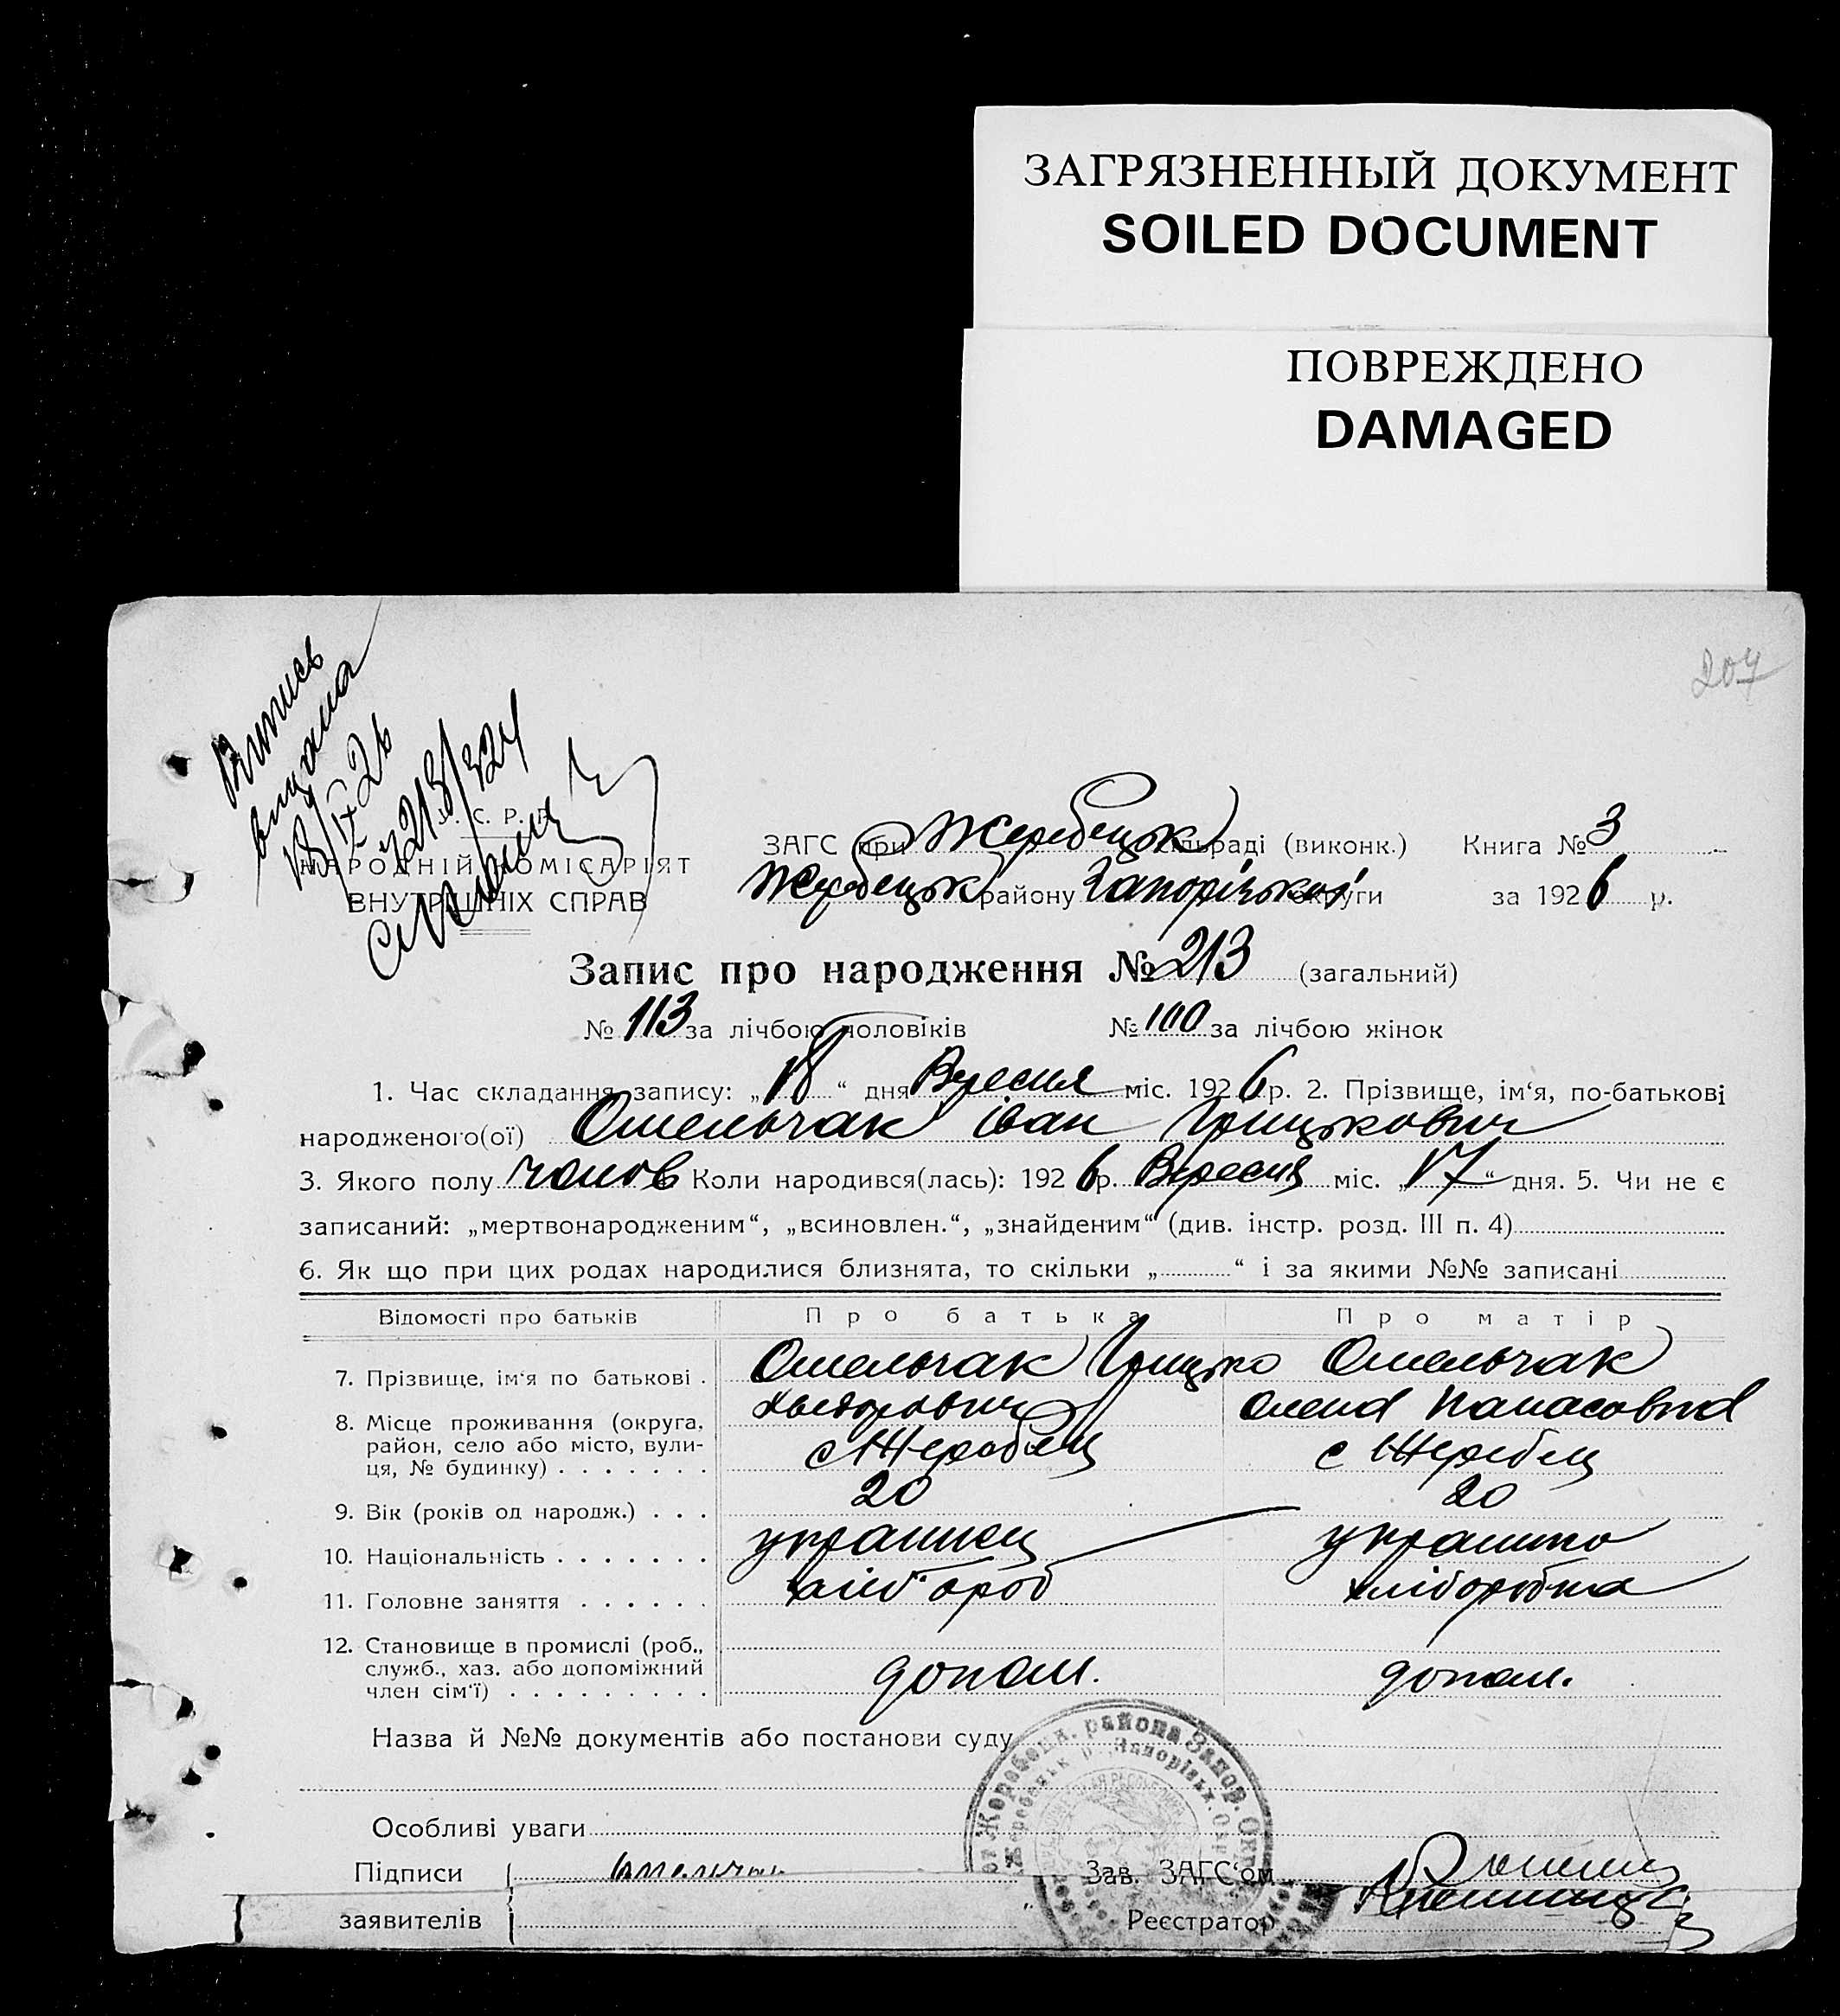 ЗАГРЯЗНЕННЫЙ ДОКУМЕНТ
SOILED DOCUMENT
ПОВРЕЖДЕНО
DAMAGED
207
Випись
видана
18/IX 26
С. Р. Р.
НАРОДНІЙ КОМІСАРІЯТ
ВНУТРІШНІХ СПРАВ
ЗАГС при Жеребецьк сільраді (виконк.) Книга № 3
Жеребецьк району Запорізької округи за 1926 р.
Запис про народження № 213 (загальний)
№ 113 за лічбою чоловіків № 100 за лічбою жінок
1. Час складання запису: „18“ дня Вересня міс. 1926 р. 2. Прізвище, ім‘я, по-батькові
народженого(ої) Омельчак іван Грицькович
3. Якого полу чолов Коли народився(лась): 1926 р. Вересня міс. „17“ дня. 5. Чи не є
записаний: „мертвонародженим“, „всиновлен.“, „знайденим“ (див. інстр. розд. III п. 4)
6. Як що при цих родах народилися близнята, то скільки „ “ і за якими №№ записані
Відомості про батьків Про батька Про матір
7. Прізвище, ім‘я по батькові . Омельчак Грицько Омельчак
Хведорович Олена Панасовна
8. Місце проживання (округа,
район, село або місто, вули-
ця, № будинку) . . . . . . . с Жеребец с Жеребец
9. Вік (років од народж.) . . . 20 20
10. Національність . . . . . . . українец українка
11. Головне заняття . . . . . . хлібороб хліборобка
12. Становище в промислі (роб.,
служб., хаз. або допоміжний
член сім‘ї) . . . . . . . . . допом. допом.
Назва й №№ документів або постанови суду
Особливі уваги
Підписи Омельчак Зав. ЗАГС‘ом
заявителів Реєстратор